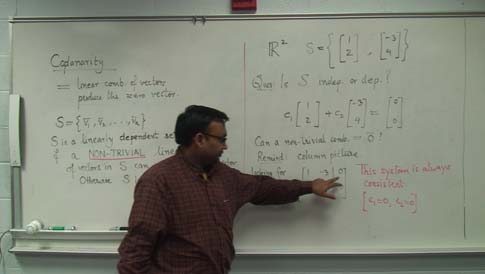 Coplanarity
= linear comb. of vectors
produce the zero vector.
S = {v̄₁, v̄₂, ..., v̄ₖ}
S is a linearly dependent set
if a NON-TRIVIAL linear
of vectors in S can
Otherwise S
ℝ² S = { [1 2], [-3 4] }
Ques: Is S indep. or dep.?
c₁ [1 2] + c₂ [-3 4] = [0 0]
Can a non-trivial comb. = 0̄?
Remind: column picture
looking for [1 -3 | 0
This system is always
consistent
[c₁=0, c₂=0]